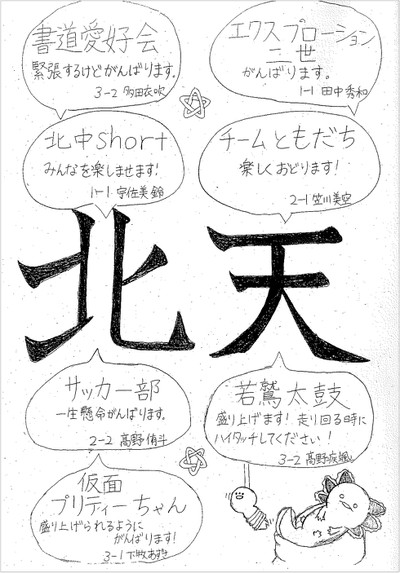 書道愛好会
緊張するけどがんばります。
3-2 多田衣吹
エクスプローション
二世
がんばります。
1-1 田中秀和
北中short
みんなを楽しませます!
1-1 宇佐美 鈴
チームともだち
楽しくおどります!
2-1 笠川美空
北天
サッカー部
一生懸命がんばります。
2-2 髙野 侑斗
若鷲太鼓
盛り上げます! 走り回る時に
ハイタッチしてください!
3-2 髙野 疾颯
仮面
プリティーちゃん
盛り上げられるように
がんばります!
3-1